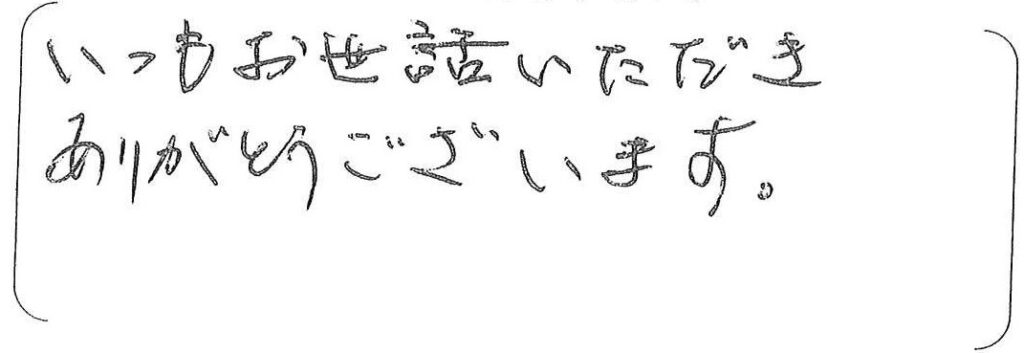 いつもお世話いただき
ありがとうございます。